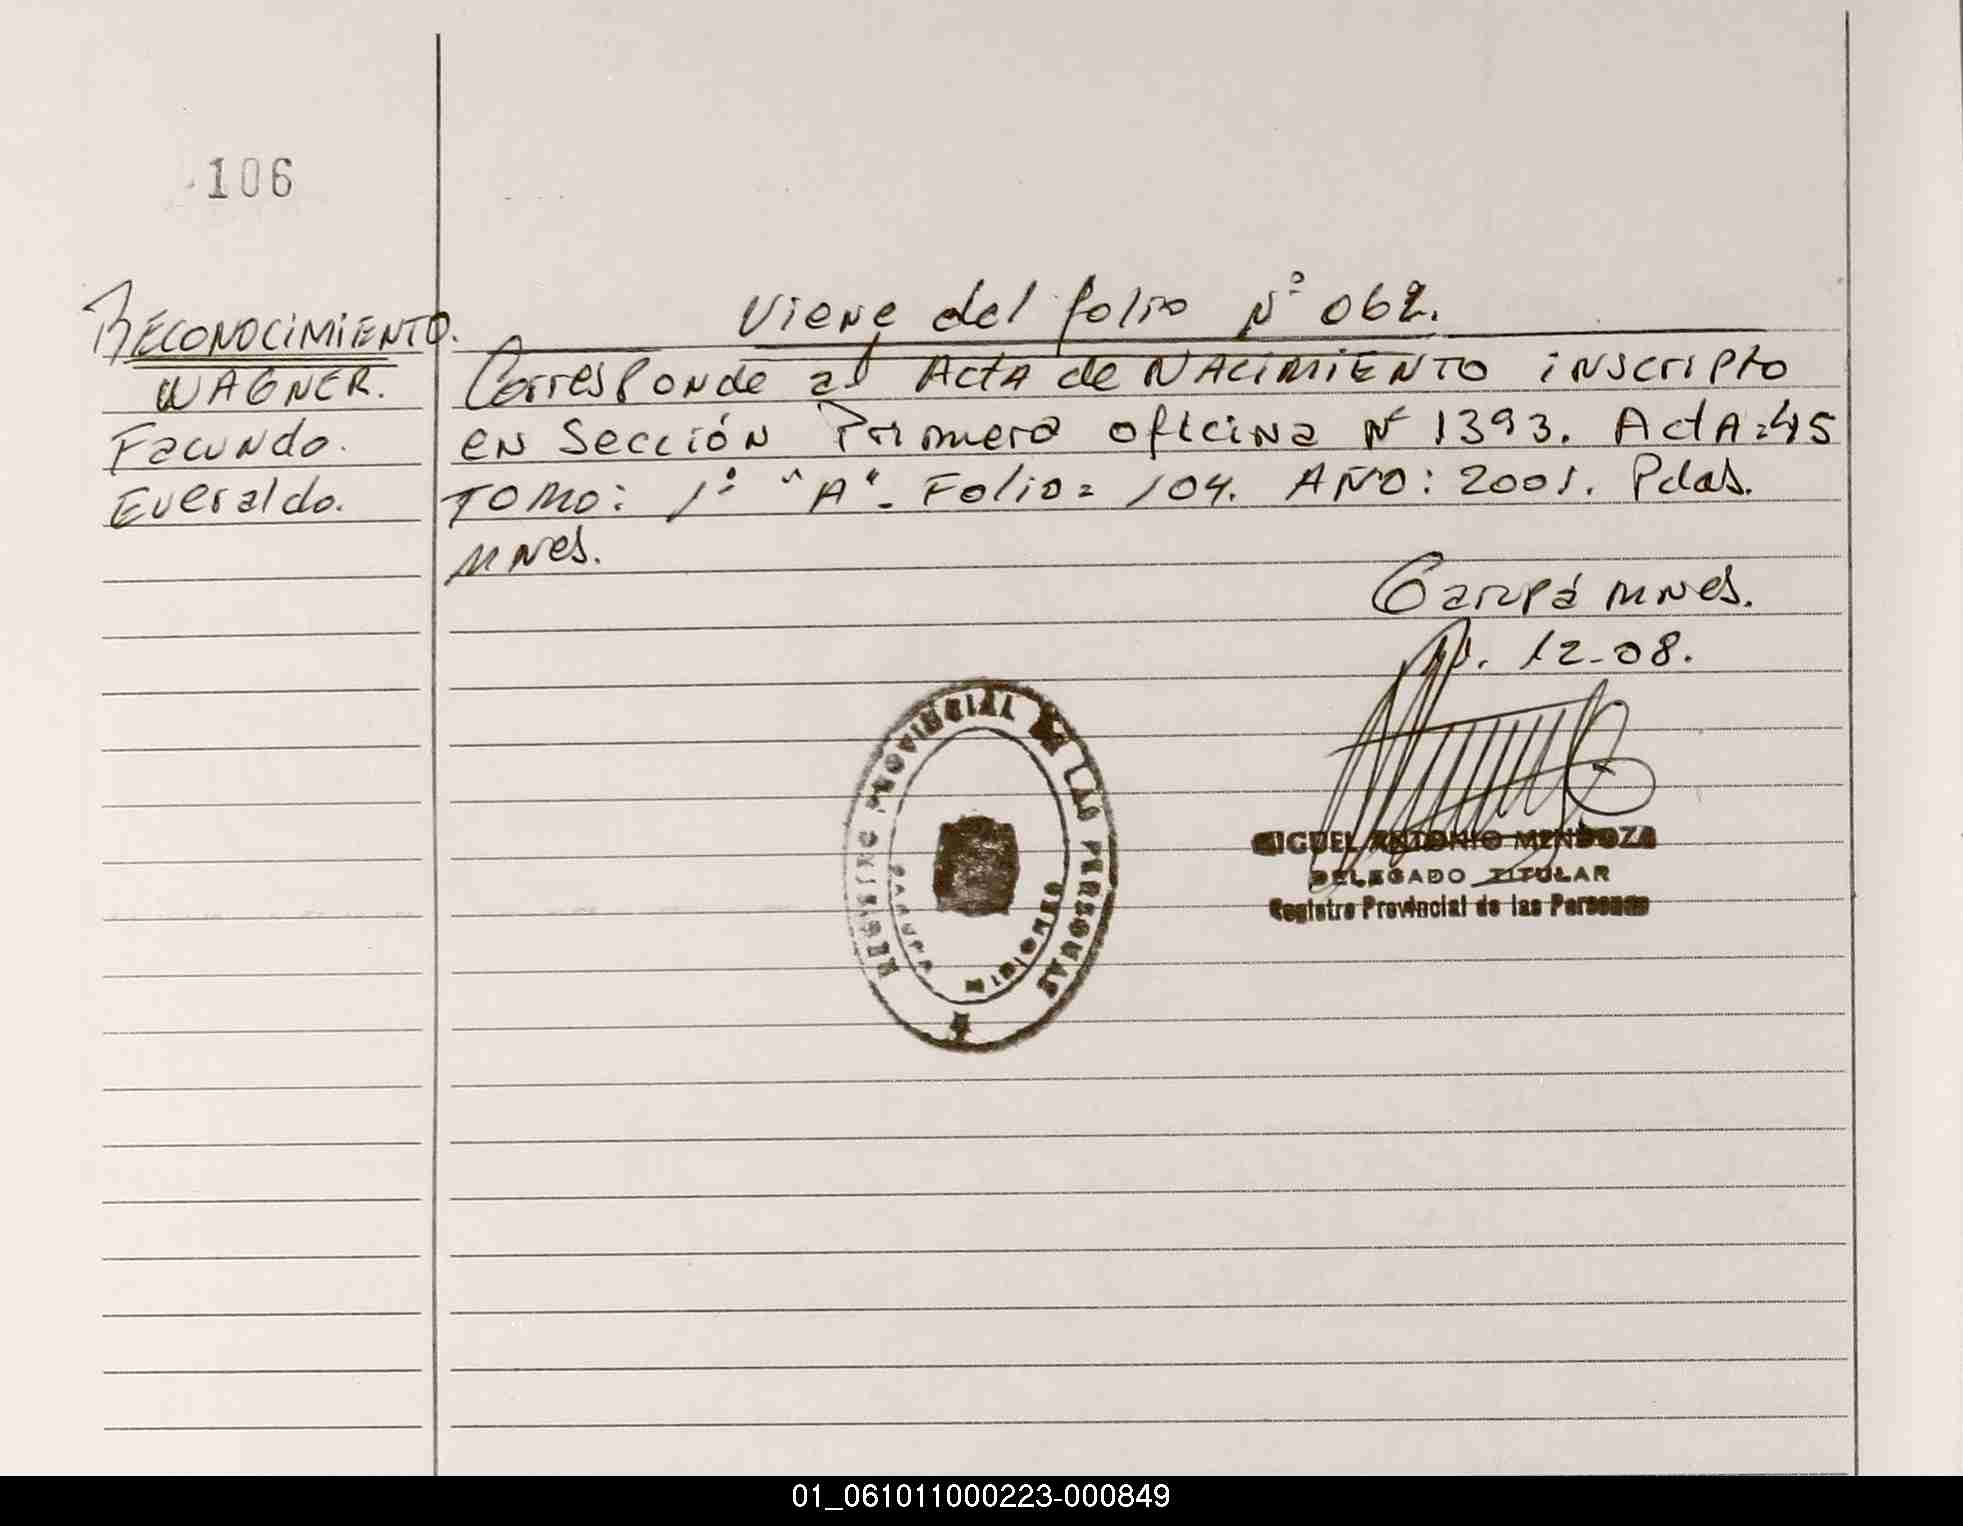 106
RECONOCIMIENTO.
WAGNER.
Facundo.
Everaldo.
Viene del folio Nº 062.
Corresponde al Acta de NACIMIENTO inscripto
en Sección Primera oficina Nº 1393. Acta: 45
TOMO: 1º "A". Folio: 104. AÑO: 2001. Pdas.
Mnes.
Garupá Mnes.
12-08.
REGISTRO PROVINCIAL DE LAS PERSONAS
GARUPA
MISIONES
MIGUEL ANTONIO MENDOZA
DELEGADO TITULAR
Registro Provincial de las Personas
01_061011000223-000849